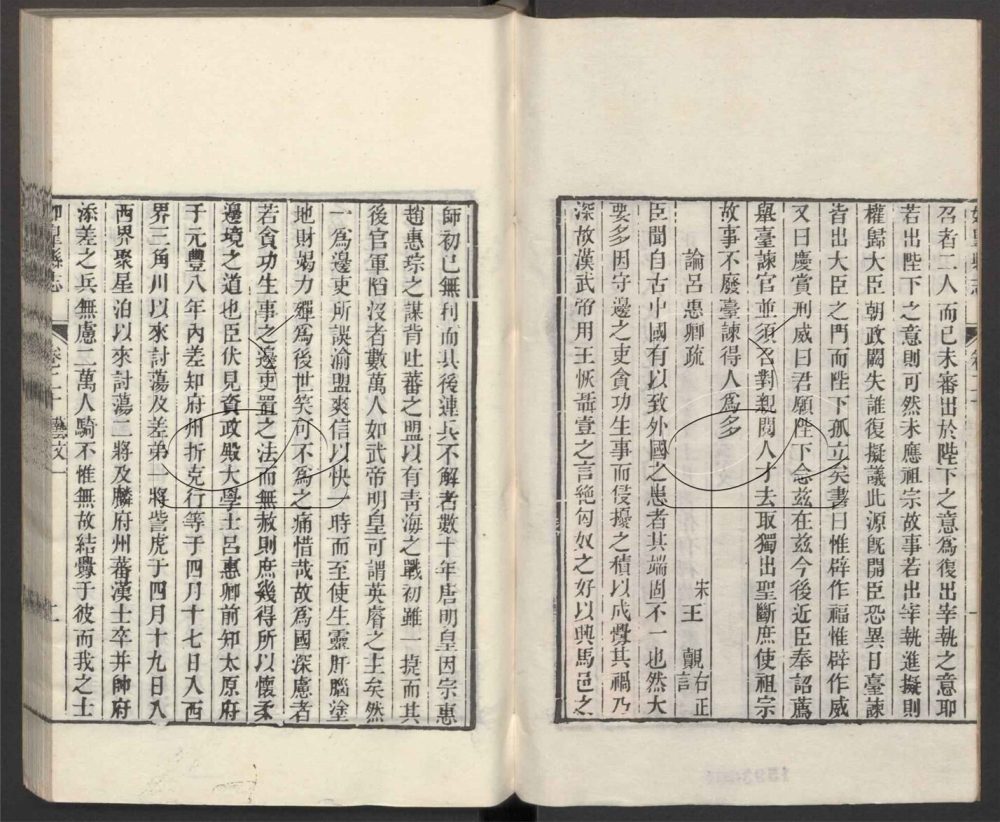 召者二人而已未審出於陛下之意爲復出宰執之意耶
若出陛下之意則可然未應祖宗故事若出宰執進擬則
權歸大臣朝政闕失誰復擬議此源旣開臣恐異日臺諫
皆出大臣之門而陛下孤立矣書曰惟辟作福惟辟作威
又曰慶賞刑威曰君願陛下念茲在茲今後近臣奉詔薦
舉臺諫官並須召對親閱人才去取獨出聖斷庶使祖宗
故事不廢臺諫得人爲多
論呂惠卿疏 宋王覿右正言
臣聞自古中國有以致外國之患者其端固不一也然大
要多因守邊之吏貪功生事而侵擾之積以成釁其禍乃
深故漢武帝用王恢聶壹之言絶匈奴之好以興馬邑之
師初已無利而其後連兵不解者數十年唐明皇因宗惠
趙惠琮之謀背吐蕃之盟以有靑海之戰初雖一㨗而其
後官軍陷沒者數萬人如武帝明皇可謂英睿之主矣然
一爲邊吏所誤渝盟爽信以快一時而至使生靈肝腦塗
地財竭力殫爲後世笑可不爲之痛惜哉故爲國深慮者
若貪功生事之邊吏置之法而無赦則庶幾得所以懷柔
邊境之道也臣伏見資政殿大學士呂惠卿前知太原府
于元豐八年內差知府州折克行等于四月十七日入西
界三角川以來討蕩及差第一將訾虎于四月十九日入
西界聚星泊以來討蕩二將及麟府州蕃漢士卒并帥府
添差之兵無慮二萬人騎不惟無故結釁于彼而我之士
卷二十 藝文一